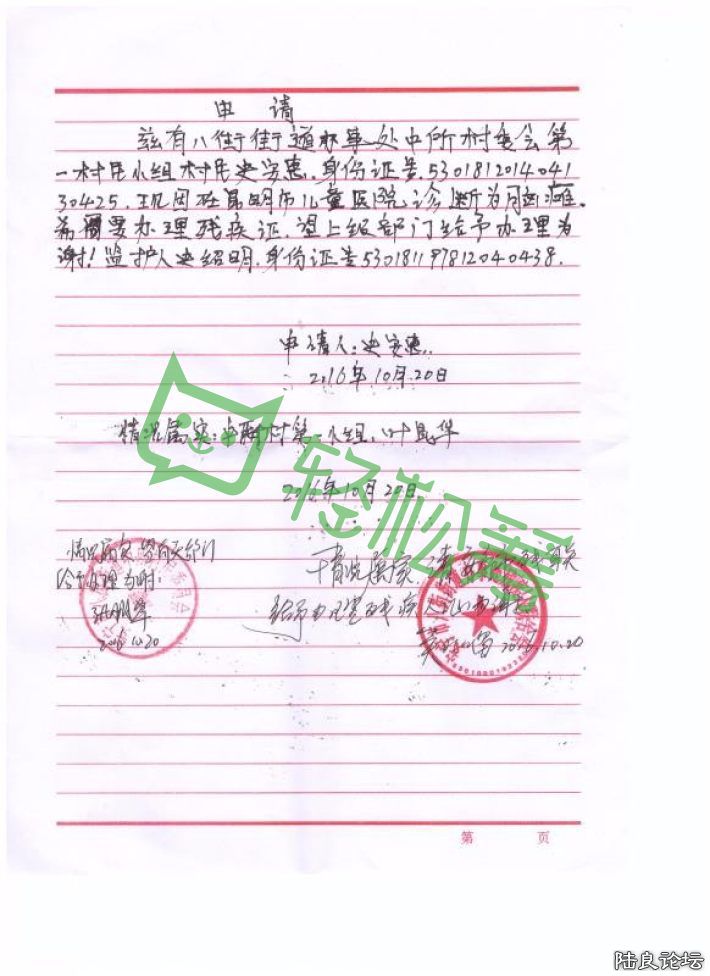 申 请
兹有八街街道办事处中所村委会第
一村民小组村民央安惠.身份证号5301812014041
30425.现因在昆明市儿童医院诊断为脑瘫.
需要办理残疾证.望上级部门给予办理为
谢!监护人央绍明.身份证号530181197812040438.
申请人:央安惠.
2016年10月20日
情况属实: 村第一小组:叶昆华
2016年10月20日
轻松筹
情况属实 部门
给予办理为谢
2016.10.20
情况属实 请 残联
给予办理残疾
2016.10.20
第 页
陆良论坛